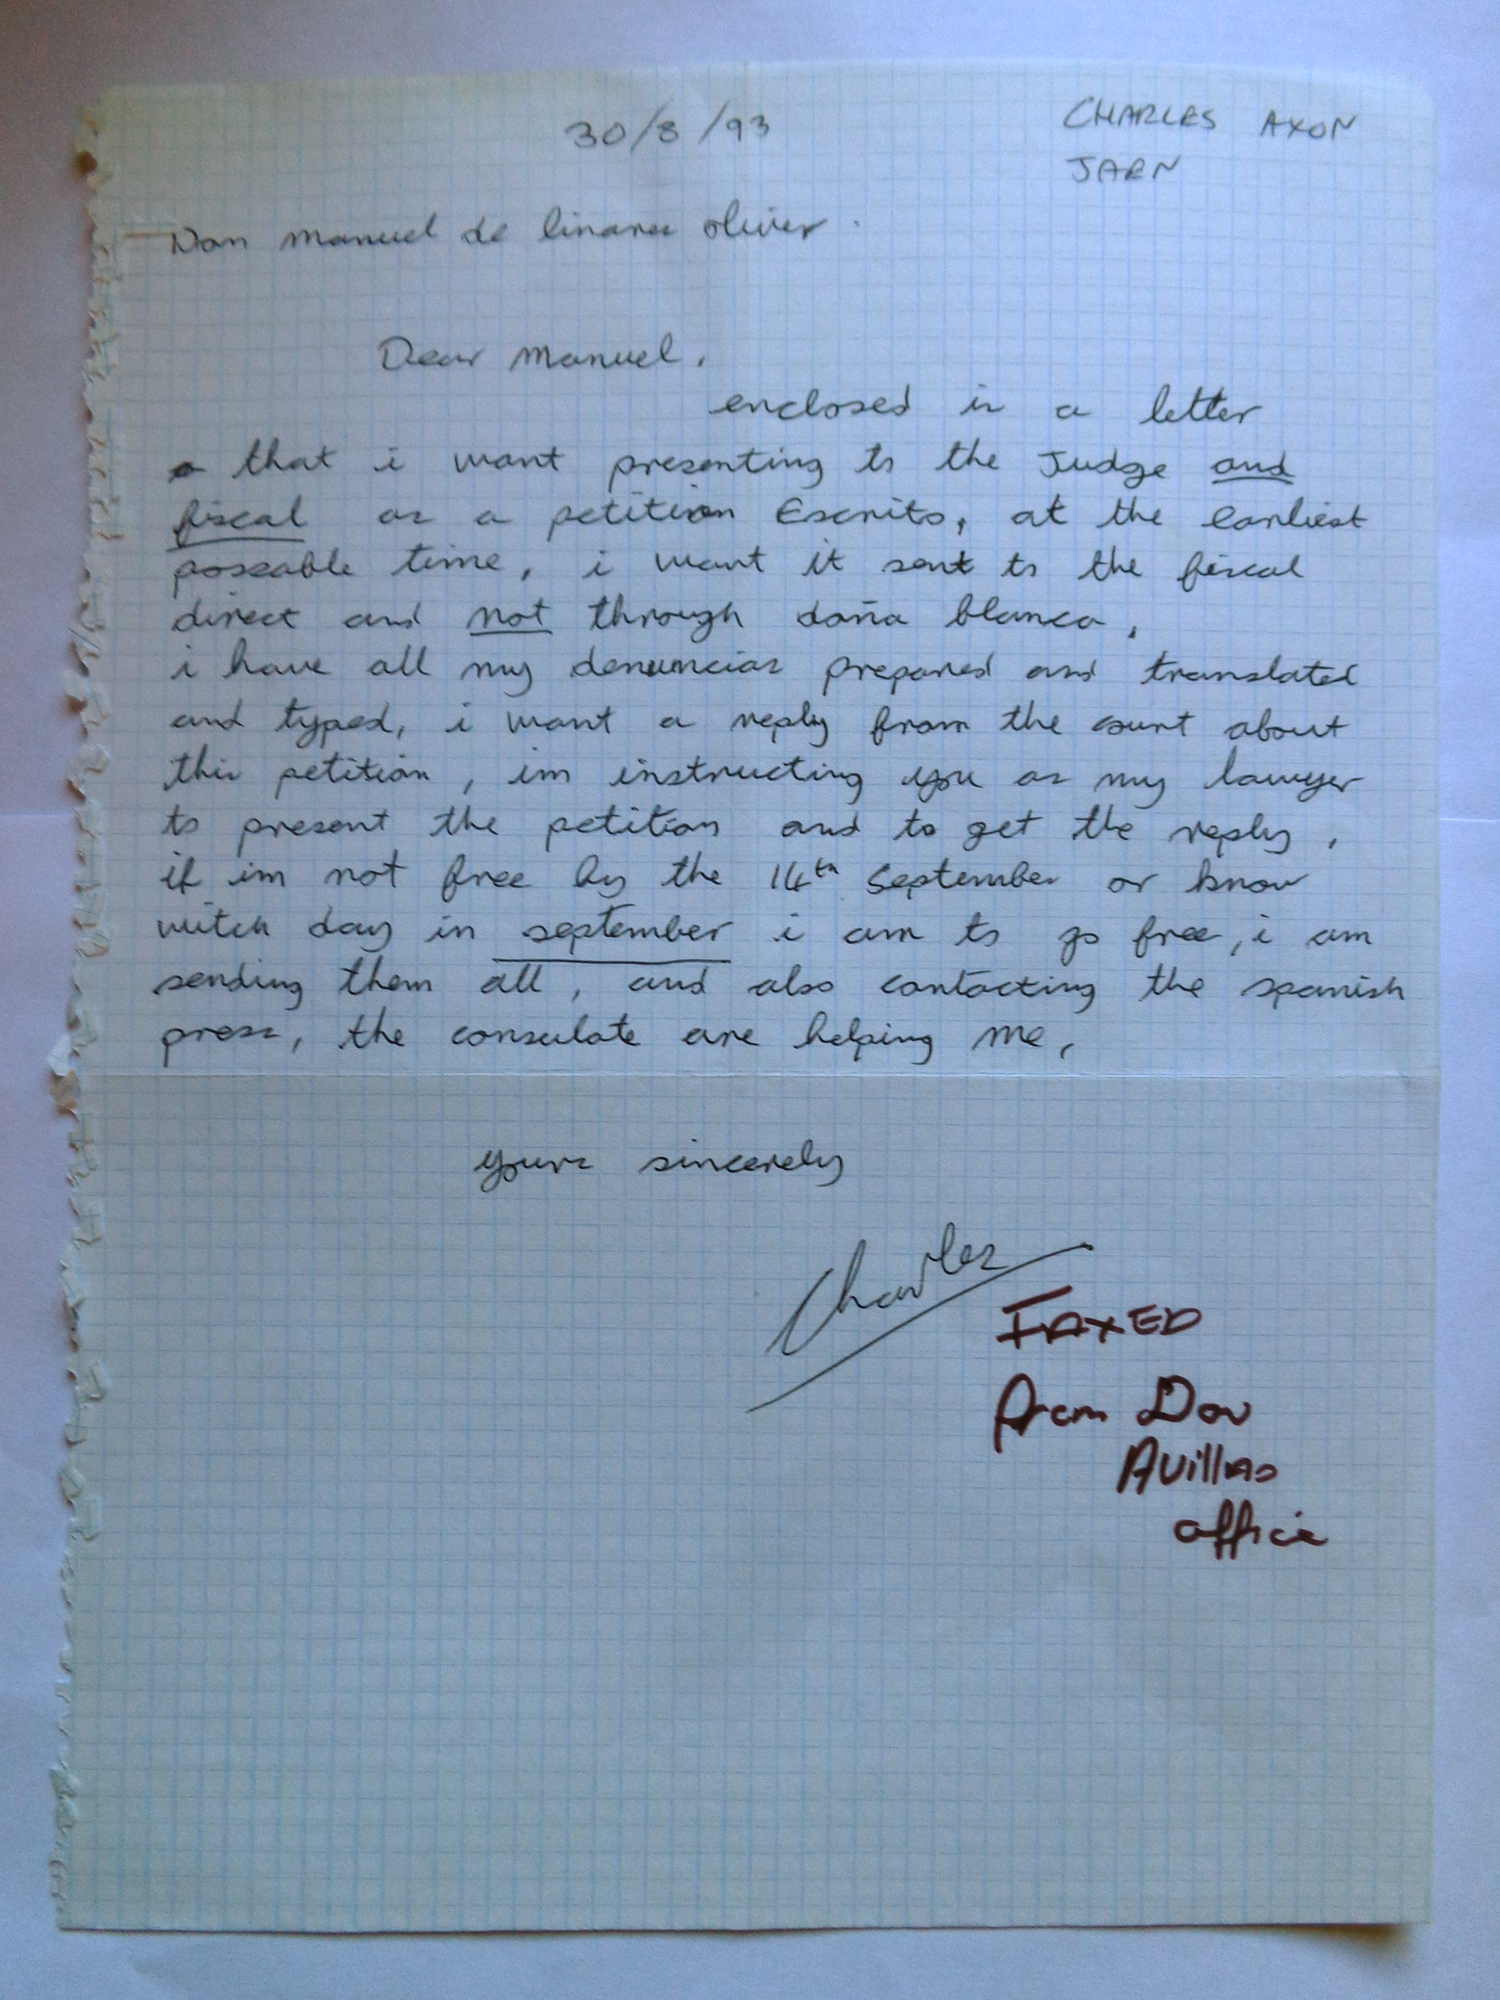 30/8/93
CHARLES AXON
JAEN
Don manuel de linares oliver.
Dear manuel,
enclosed is a letter
that i want presenting to the Judge and
fiscal as a petition Escrito, at the earliest
poseable time, i want it sent to the fiscal
direct and not through doña blanca,
i have all my denuncias prepared and translated
and typed, i want a reply from the court about
this petition, im instructing you as my lawyer
to present the petition and to get the reply,
if im not free by the 14th september or know
witch day in september i am to go free, i am
sending them all, and also contacting the spanish
press, the consulate are helping me,
yours sincerely
Charles
FAXED
From Dov
Avillas
office